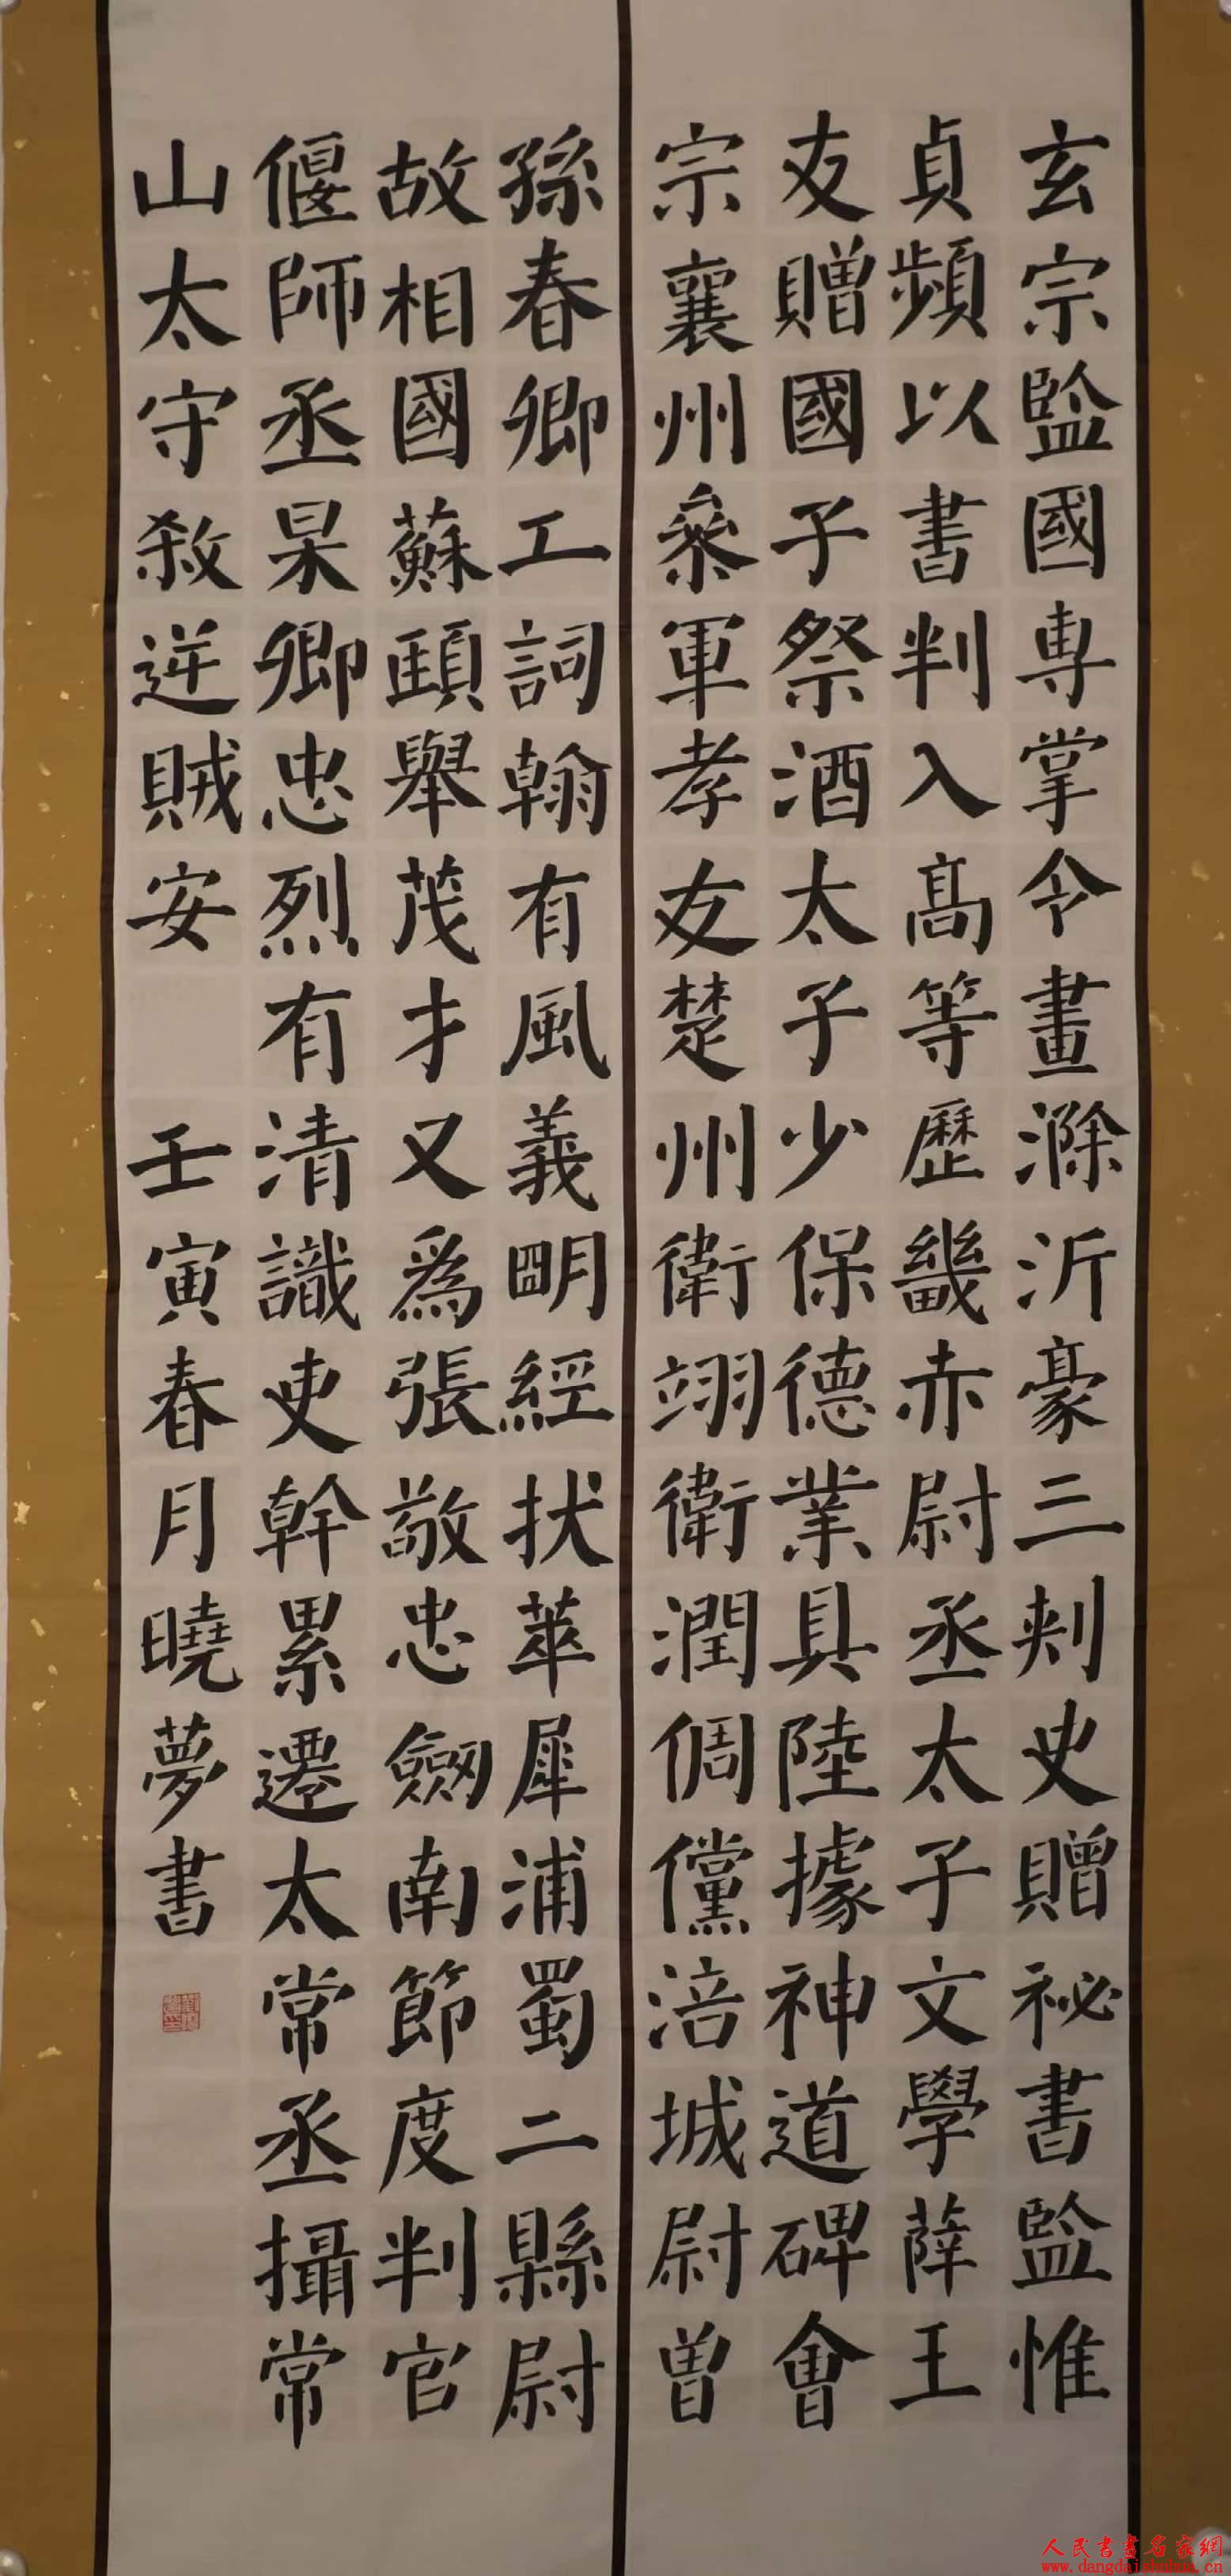 玄宗監國專掌令畫滁沂豪三刾史贈祕書監惟
貞頻以書判入高等歷畿赤尉丞太子文學薛王
友贈國子祭酒太子少保德業具陸據神道碑會
宗襄州參軍孝友楚州衛翊衛潤倜儻涪城尉曾
孫春卿工詞翰有風義明經拔萃犀浦蜀二縣尉
故相國蘇頲舉茂才又為張敬忠劍南節度判官
偃師丞杲卿忠烈有清識吏幹累遷太常丞攝常
山太守殺逆賊安
壬寅春月曉夢書
人民書畫名家網
www.dangdaishuhua.cn